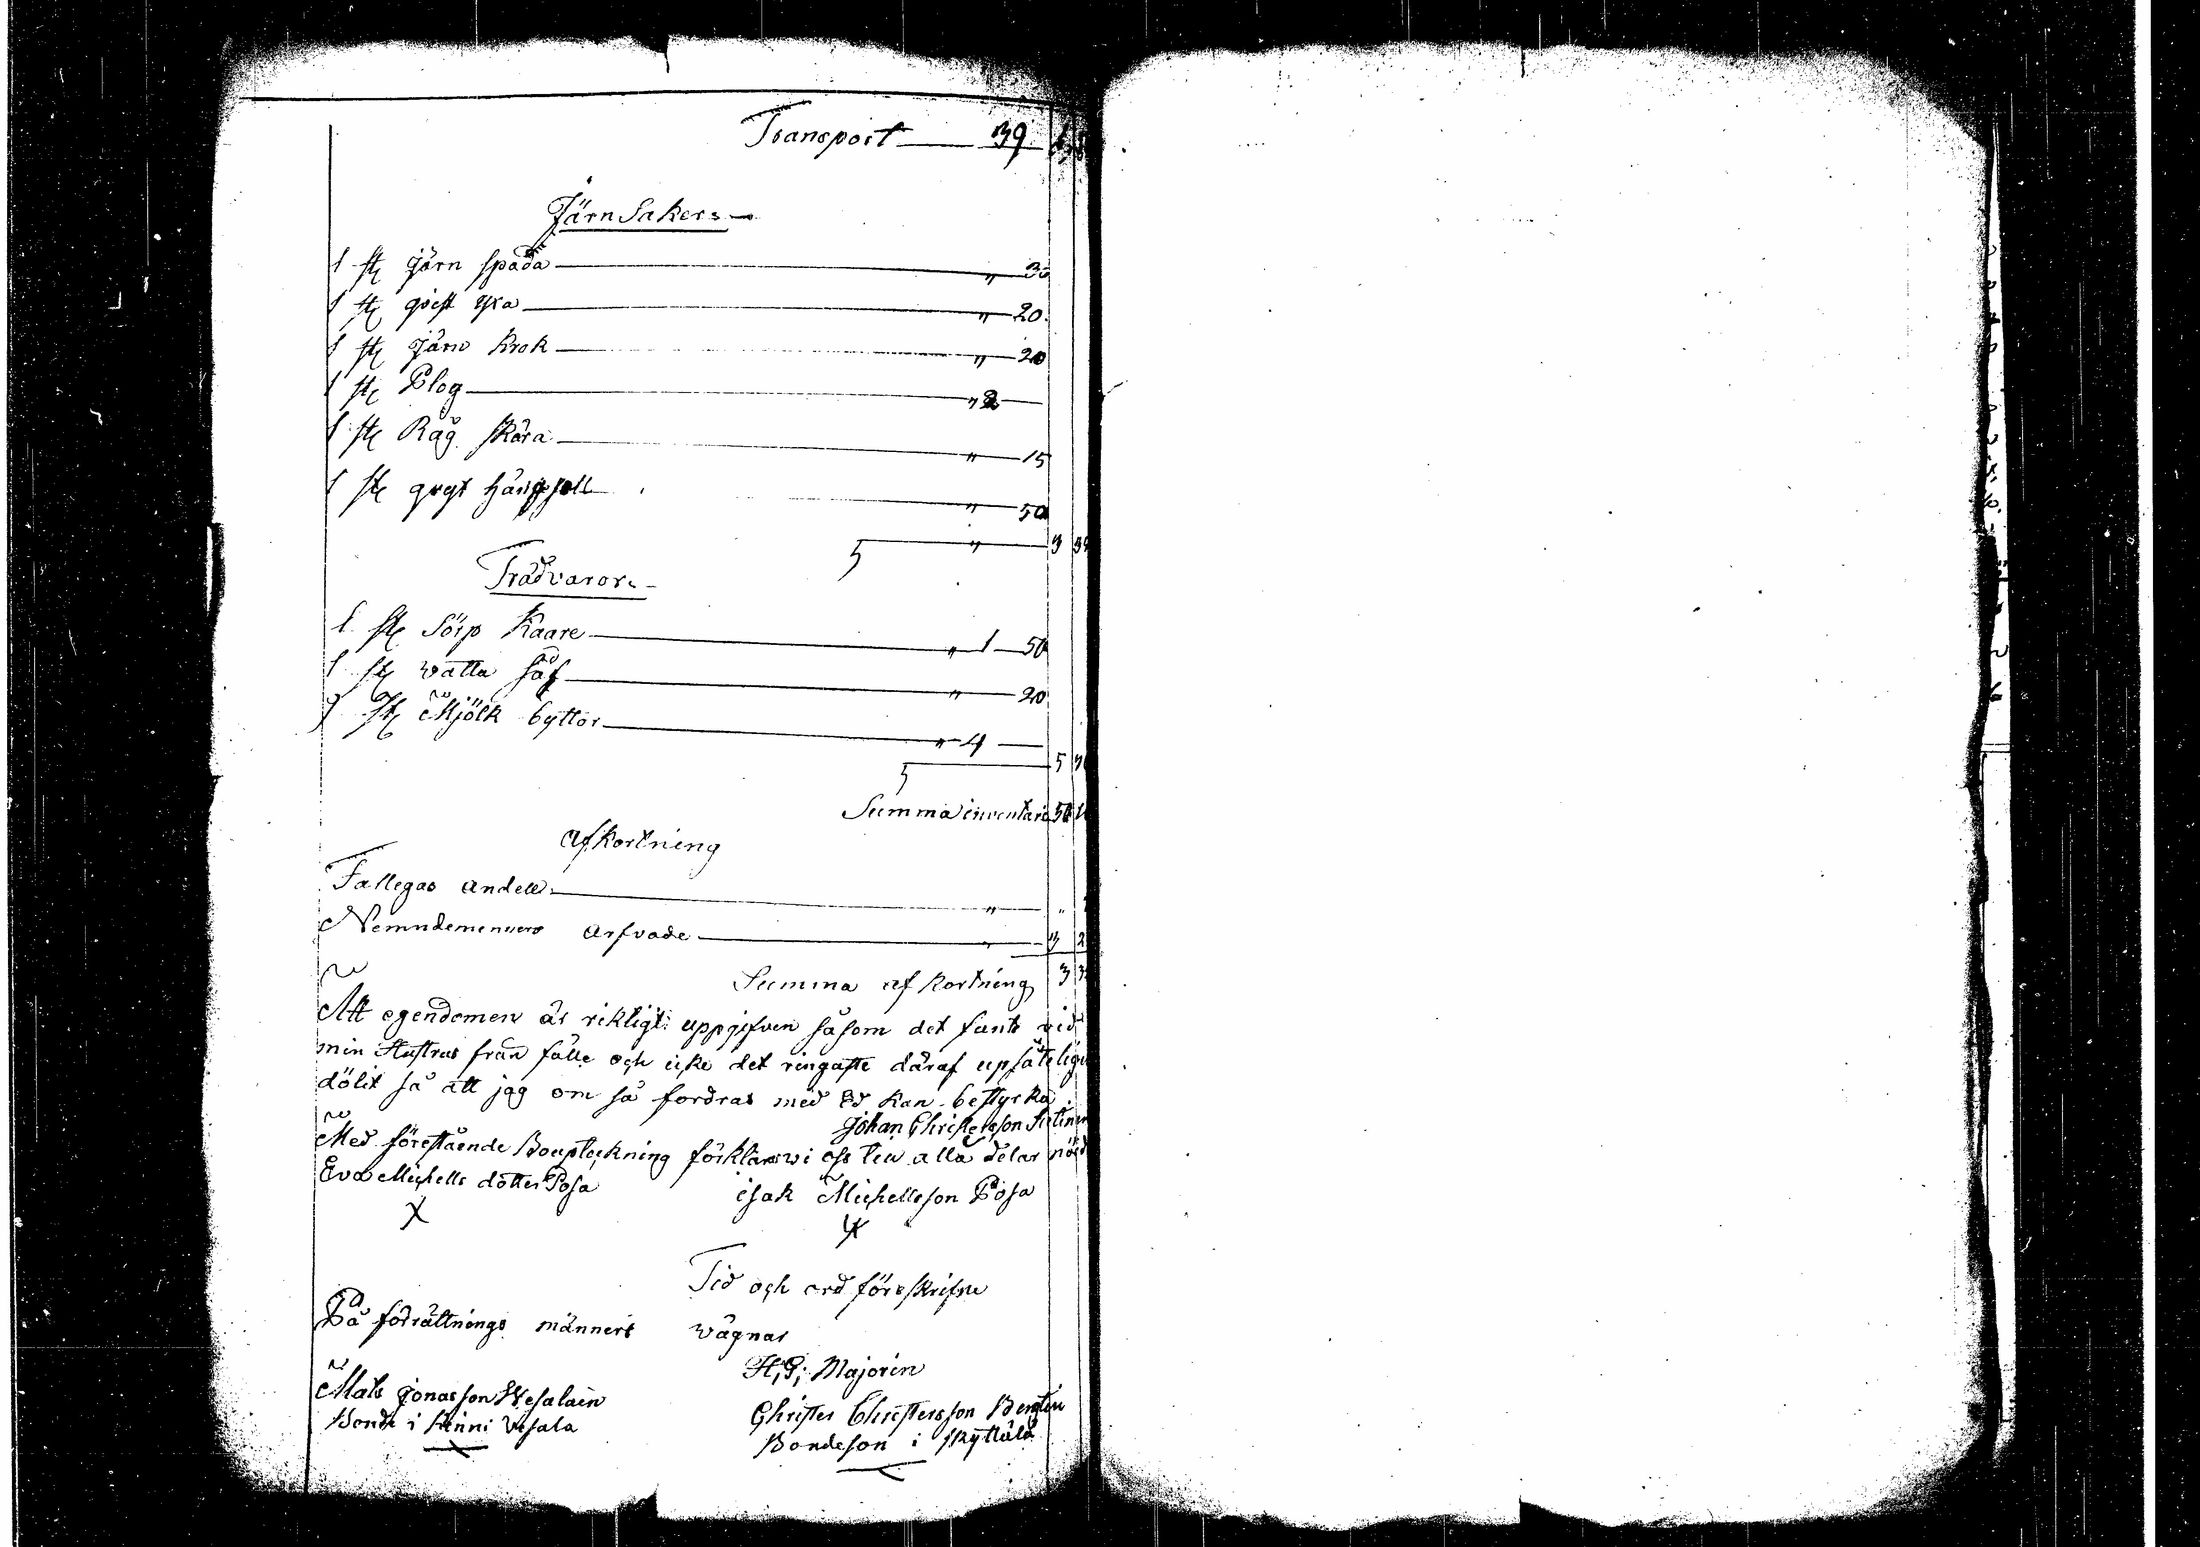 Transport 39
Järn Saker:
1 st järn spada " 30
1 st qvist yxa " 20
1 st järn Krok " 20
1 st Plog " 2
1 st Råg skära " 15
1 st " 50
" 3
Trädvaror:
1 st Sörp Kaare " 1 50
1 st vatta " 20
st Mjölk byttor " 4
5
Summa inventarie
Afkortning
Fattigas andell " "
Nemndemennens Arfvode " 3
Summa afkortning 3
Att egendomen är riktigt uppgifven såsom det fants vid
min Hustrus från fälle och icke det ringaste däraf upsåteligen
dölit så att jag om så fordras med Ed kan bestyrka
Johan Christersson
Med förestående Bouptekning förklara vi oss till alla delar nöjd
Eva Michells dotter Posa isak Michellsson Posa
X X
Tid och ord förrskrifne
På förrättnings männers vägnar
H; G; Majorin
Mats Jonasson Wesalain Christer Christersson
Bonde i Vesala Bondeson i Skyttälä